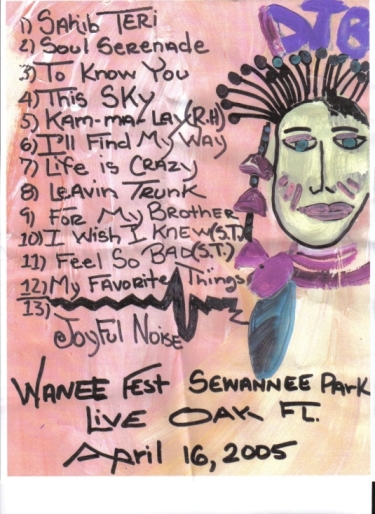 DTB
1) Sahib TERI
2) Soul Serenade
3) To Know You
4) This SKy
5) Kam-ma-Lay(R.H)
6) I'll Find My Way
7) Life is CRAZy
8) LeAvin TRunk
9) FoR My BROTHER
10) I Wish I Knew(S.T.)
11) Feel So BAD(S.T.)
12) My FavoRite Things
13)
Joyful Noise
WANEE Fest SEWANNEE PaRK
LivE OAK FL.
April 16, 2005